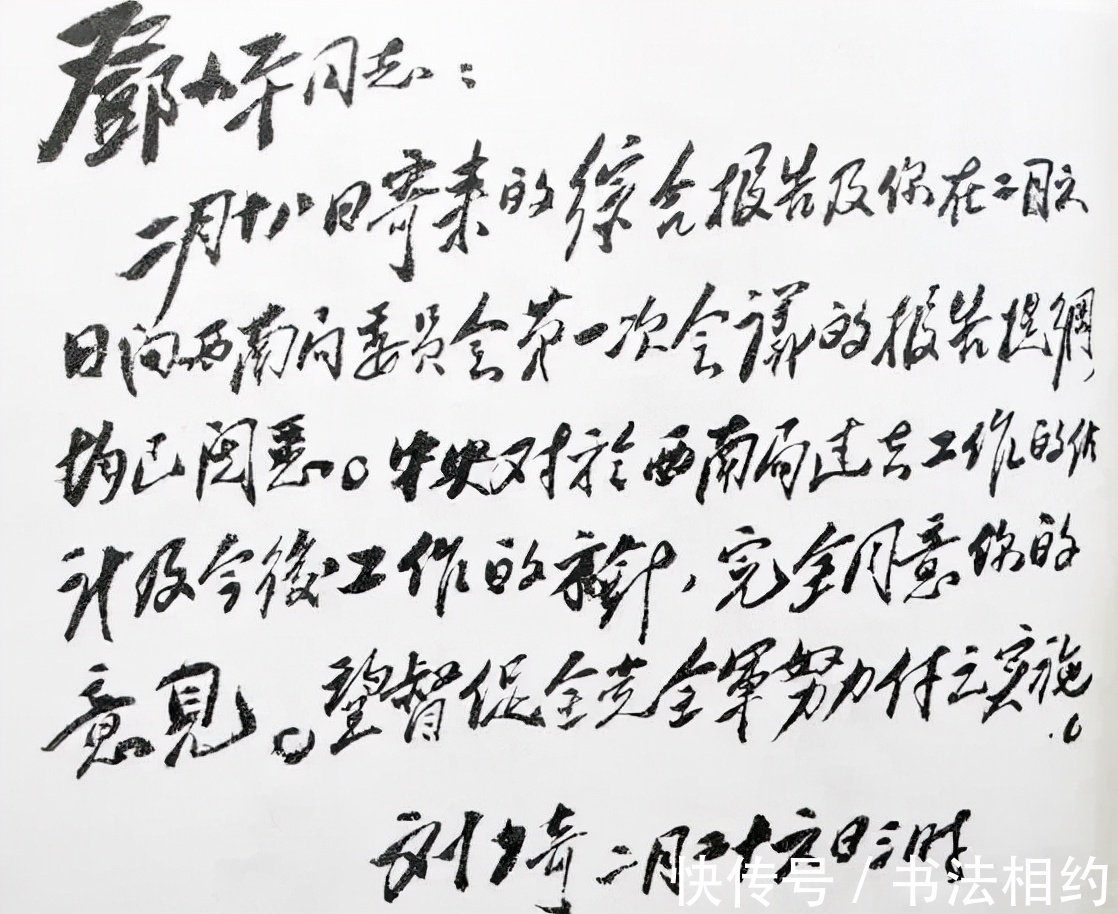 鄧小平同志：
二月十八日寄来的综合报告及你在二月六
日向西南局委員会第一次会議的报告提綱，
均已閱悉。中央对於西南局过去工作的估
计及今後工作的方針，完全同意你的
意見。望督促全党全軍努力付之实施。
刘少奇 二月二十六日三时
快传号 / 书法相约